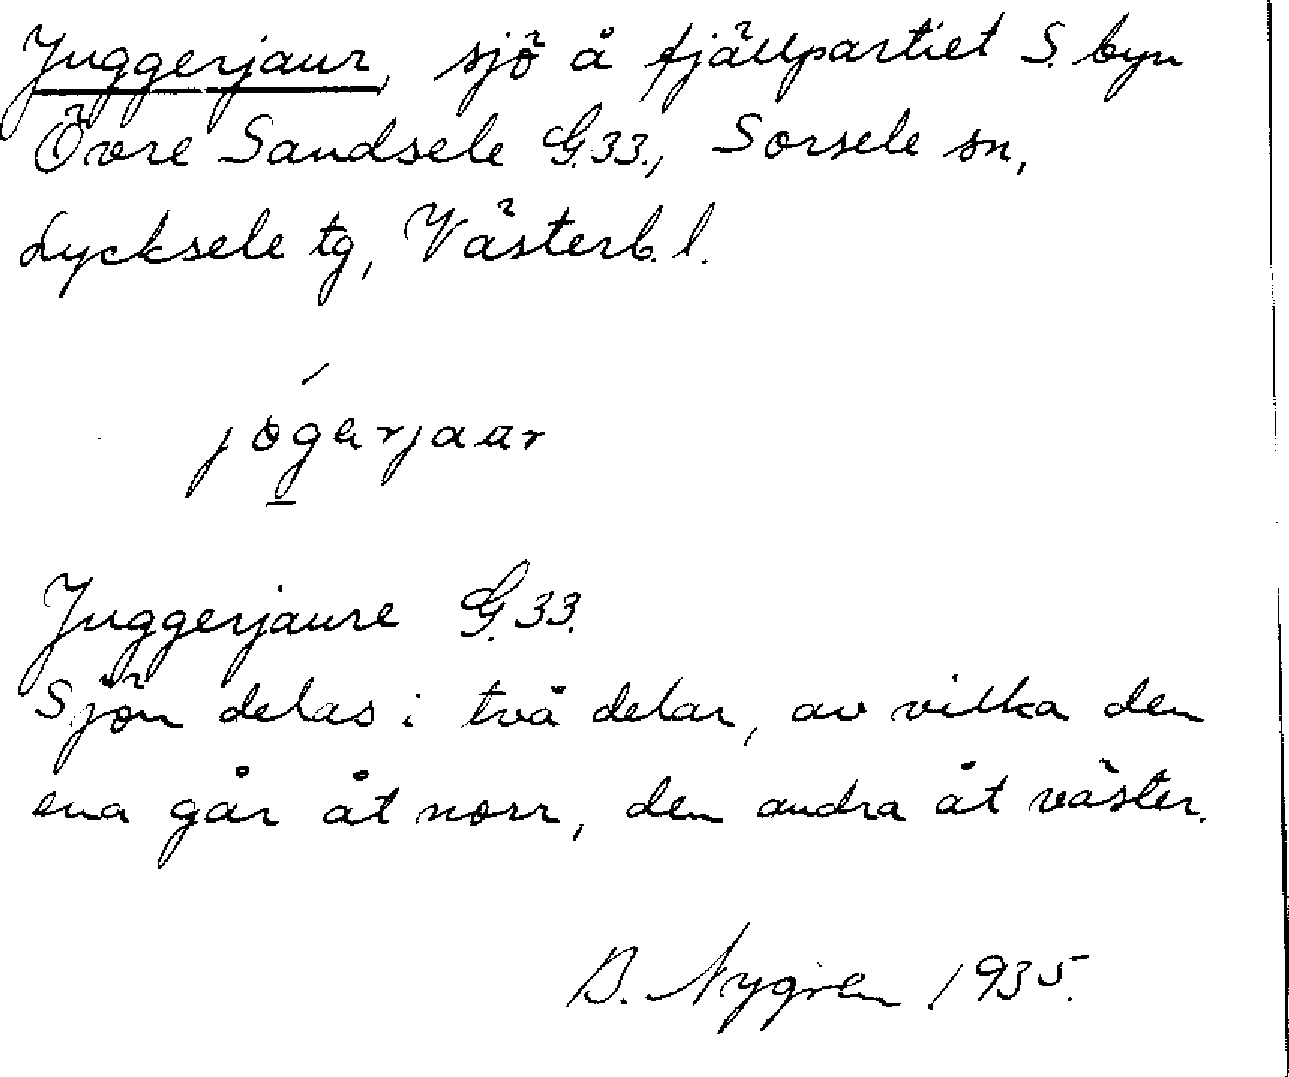 Juggerjaur, sjö å fjällpartiet S. byn
Övre Sandsele G.33., Sorsele sn,
Lycksele tg, Västerb. l.
jógarjaar
Juggerjaure G.33.
Sjön delas i två delar, av vilka den
ena går åt norr, den andra åt väster.
B. Nygren 1935.